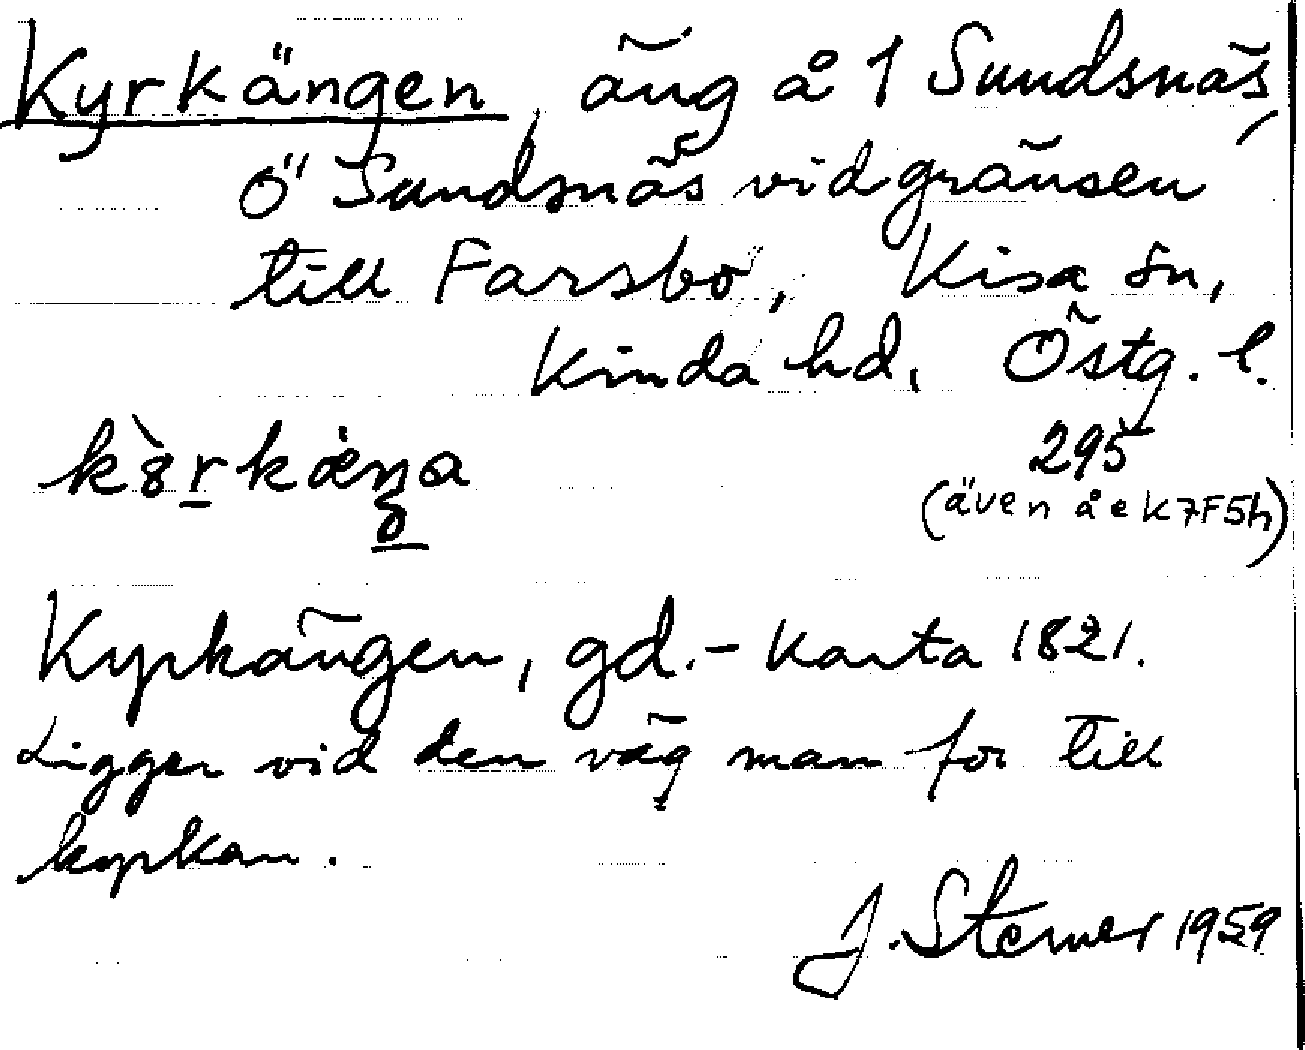 Kyrkängen, äng å 1 Sundsnäs,
Ö Sundsnäs vid gränsen
till Farsbo, Kisa sn,
Kinda hd. Östg. l.
295
(även å ek 7F5h)
Kyrkängen, gd. - Karta 1821.
Ligger vid den väg man for till
kyrkan.
J. Sterner 1959